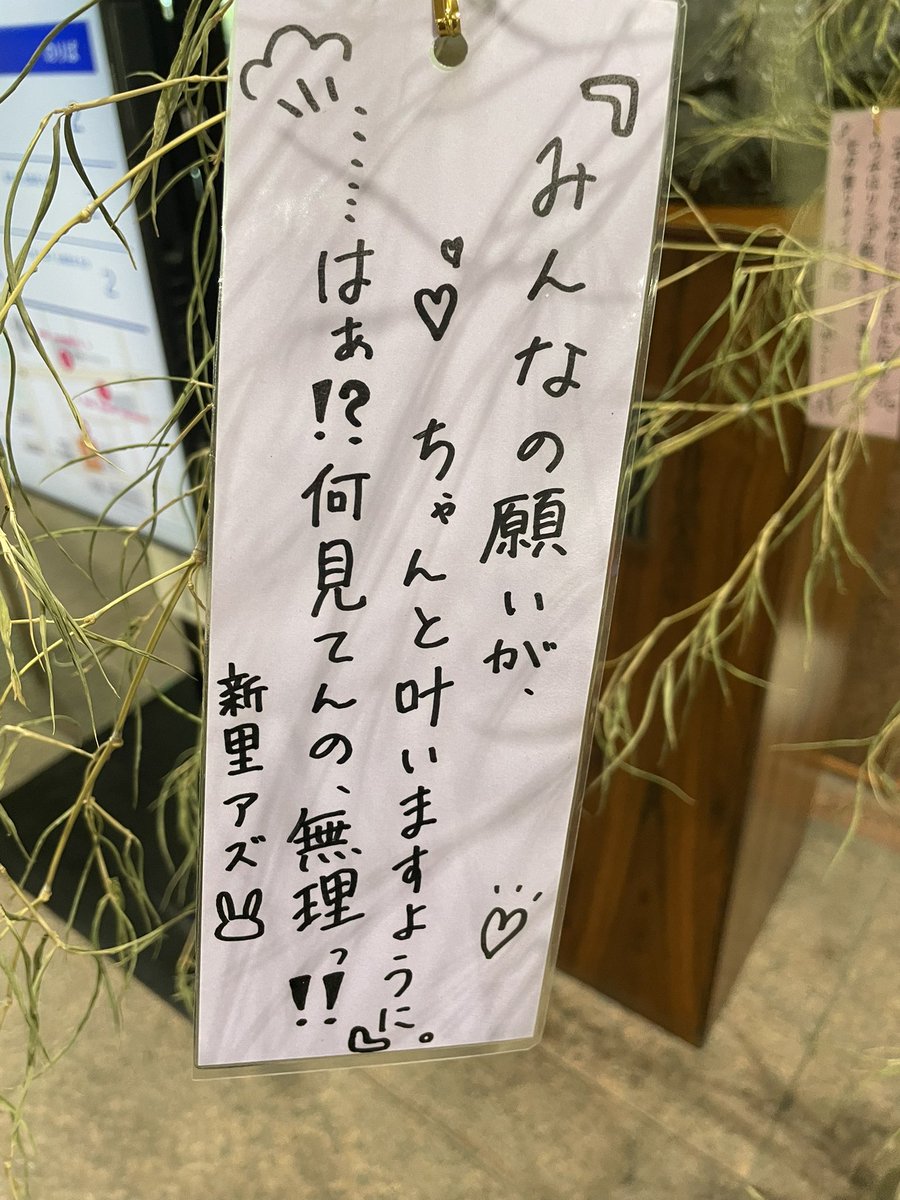 『みんなの願いが、
ちゃんと叶いますように。』
……はぁ!?何見てんの、無理っ!!
新里アズ